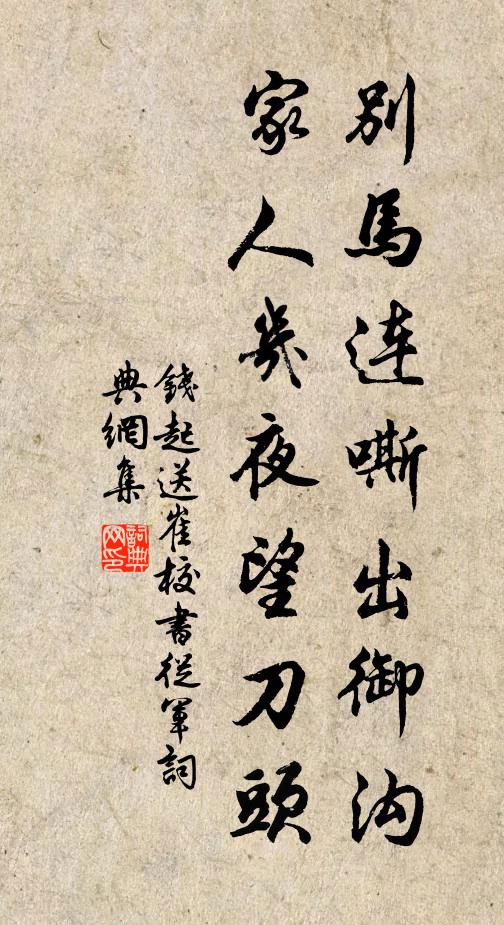 別馬連嘶出御沟
家人幾夜望刀頭
錢起送崔校書從軍詞
典網集
詞典网印